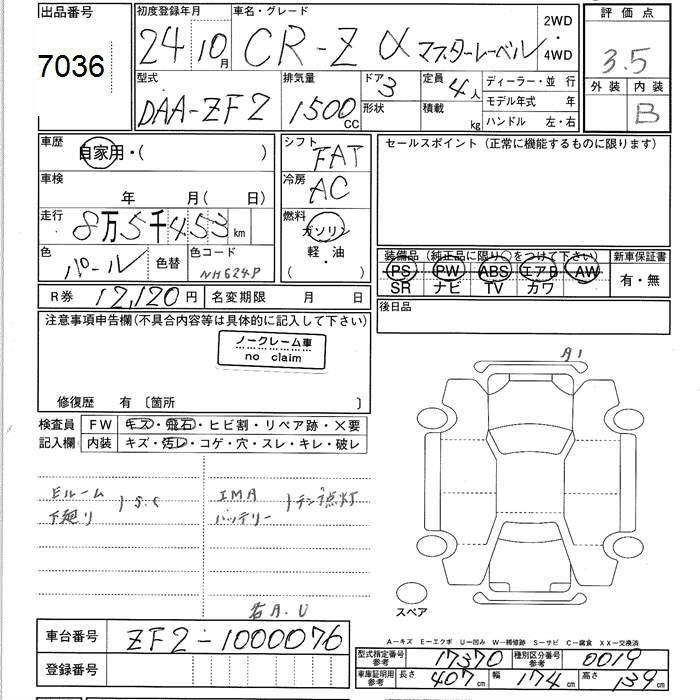 出品番号
7036
初度登録年月 車名・グレード
24 10月 CR-Z α マスターレーベル 2WD ・ 4WD
型式 排気量 ドア 定員 ディーラー・並 行
DAA-ZF2 1500cc 3 4人
形状 積載 kg
モデル年式 年
ハンドル 左・右
評 価 点
3.5
外 装 内 装
B
車歴 自家用・( )
車検 年 月( 日)
走行 8万5千453km
色 パール 色替 色コード NH624P
シフト FAT
冷房 AC
燃料 ガソリン
軽・油
( )
セールスポイント (正常に機能するものに限ります)
装備品(純正品に限り○をつけて下さい) 新車保証書
PS PW ABS エアB AW 有・無
SR ナビ TV カワ
R券 12,120円 名変期限 月 日
後日品
注意事項申告欄(不具合内容等は具体的に記入して下さい)
ノークレーム車
no claim
修復歴 有 〔箇所 〕
検査員 FW キズ・飛石・ヒビ割・リペア跡・×要
記入欄 内装 キズ・汚レ・コゲ・穴・スレ・キレ・破レ
Eルーム
下廻り S.C
IMA
バッテリー 点灯
右A.U
A1
スペア
車台番号 ZF2-1000076
登録番号
A-キズ E-エクボ U-凹み W-補修跡 S-サビ C-腐食 XX-交換済
型式指定番号 参考 17370 種別区分番号 参考 0019
車庫証明用 参考 長さ 407cm 幅 174cm 高さ 139cm